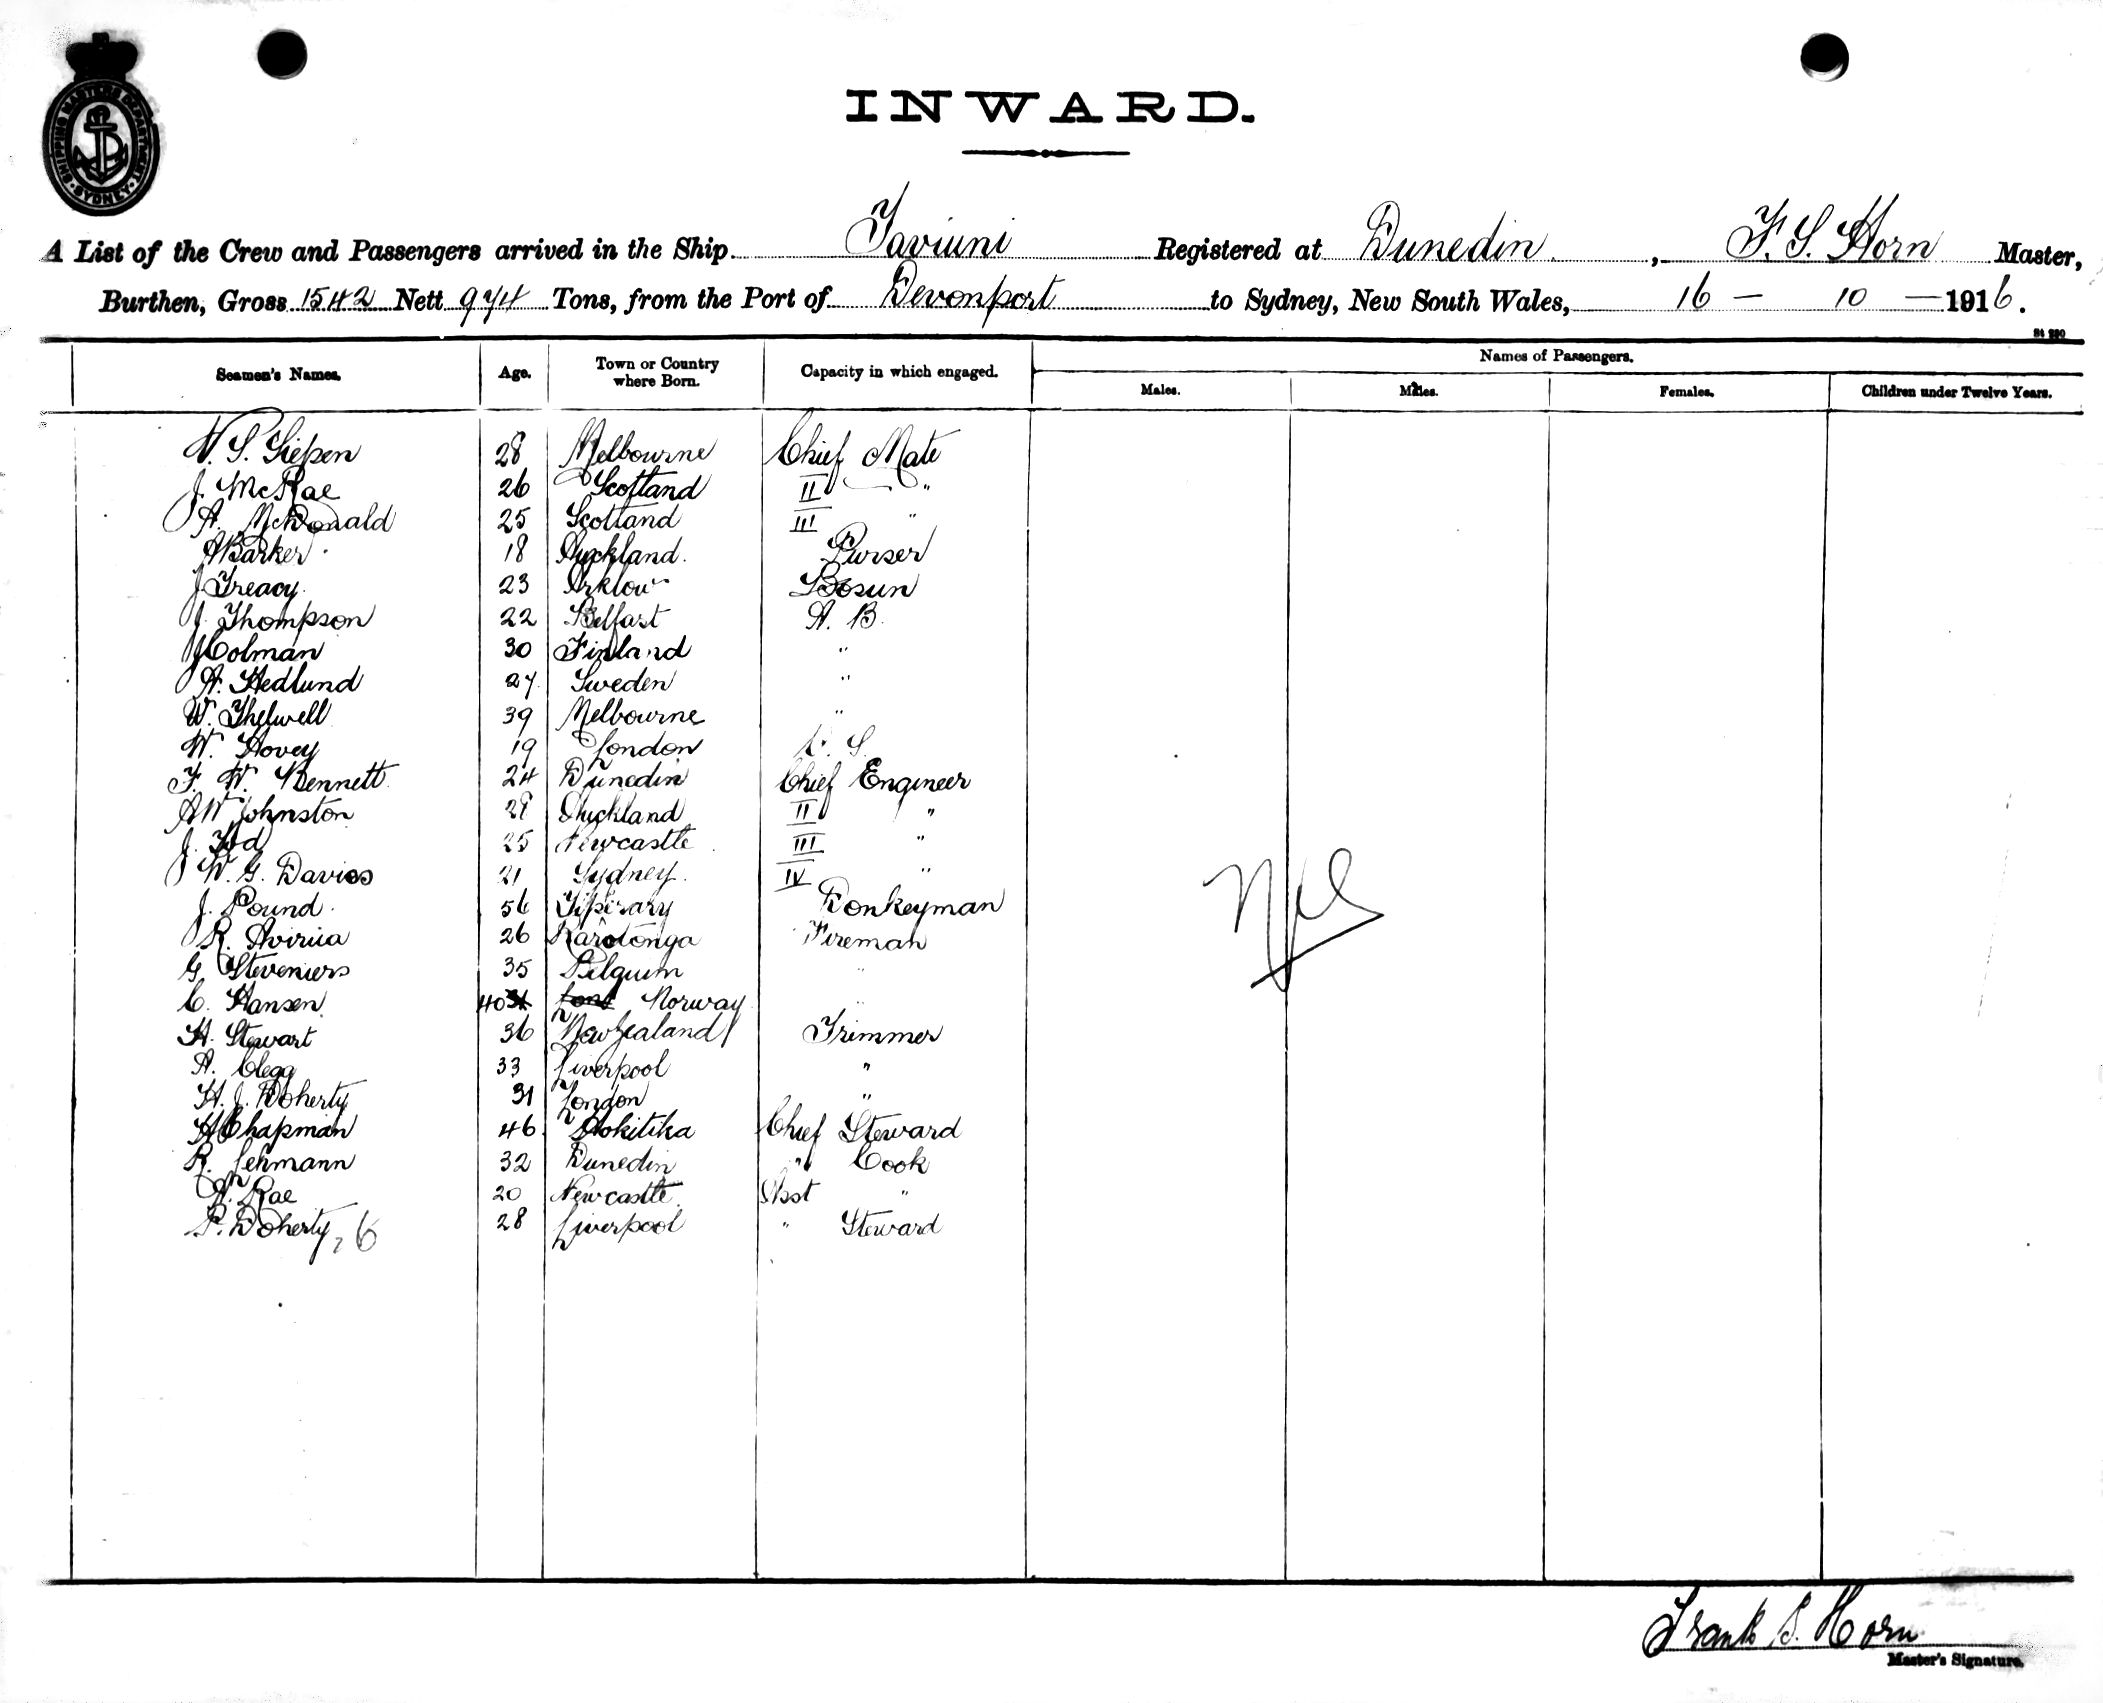 SHIPPING MASTERS DEPARTMENT. SYDNEY
INWARD.
A List of the Crew and Passengers arrived in the Ship Taviuni Registered at Dunedin, F. S. Horn Master,
Burthen, Gross 1542 Nett 974 Tons, from the Port of Devonport to Sydney, New South Wales, 16 - 10 - 1916.
St 230
Seamen's Names. Age. Town or Country where Born. Capacity in which engaged. Names of Passengers.
Males. Males. Females. Children under Twelve Years.
S. 28 Melbourne Chief Mate
J. McRae 26 Scotland II "
A. McDonald 25 Scotland III "
A Barker 18 Auckland. Purser
J Treacy. 23 Arklow Bosun
J. Thompson 22 Belfast A. B.
J Colman 30 Finland "
A. Hedlund 27 Sweden "
W. Thelwell 39 Melbourne "
W. Hovey 19 London O. S.
F. W. Bennett 24 Dunedin Chief Engineer
A W Johnston 28 Auckland II "
J. Tod 25 Newcastle III "
W. G. Davies 21 Sydney. IV "
J. Pound. 56 Tiperary Donkeyman
R. Aviriia 26 Rarotonga Fireman
G Steveniers 35 Belguim "
C. Hansen 40 Norway "
H. Stewart 36 New Zealand Trimmer
A. Clegg 33 Liverpool "
H. J. Doherty 31 London "
H Chapman 46 Hokitika Chief Steward
R. Lehmann 32 Dunedin " Cook
A. Rae 20 Newcastle Asst "
P. Doherty 28 Liverpool " Steward
Nil
Frank S. Horn
Master's Signature.